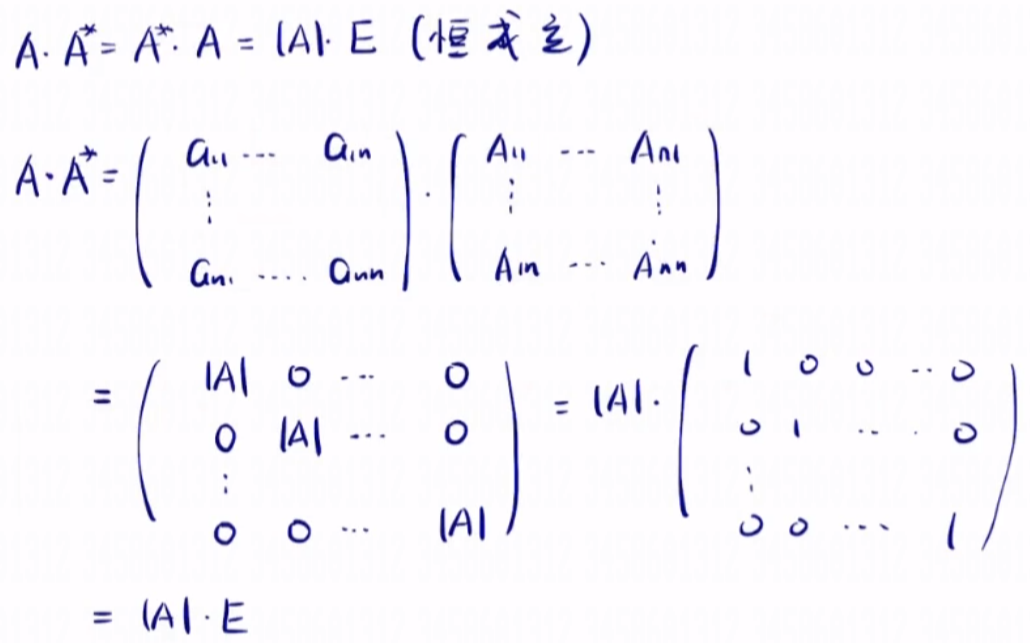 A·A* = A*·A = |A|·E (恒成立)
A·A* = ( a₁₁ ··· a₁ₙ ⋮ aₙ₁ ···· aₙₙ ) · ( A₁₁ ··· Aₙ₁ ⋮ ⋮ A₁ₙ ··· Aₙₙ )
= ( |A| 0 ··· 0 0 |A| ··· 0 ⋮ 0 0 ··· |A| ) = |A|· ( 1 0 0 ·· 0 0 1 ··· 0 ⋮ 0 0 ··· 1 )
= |A|·E